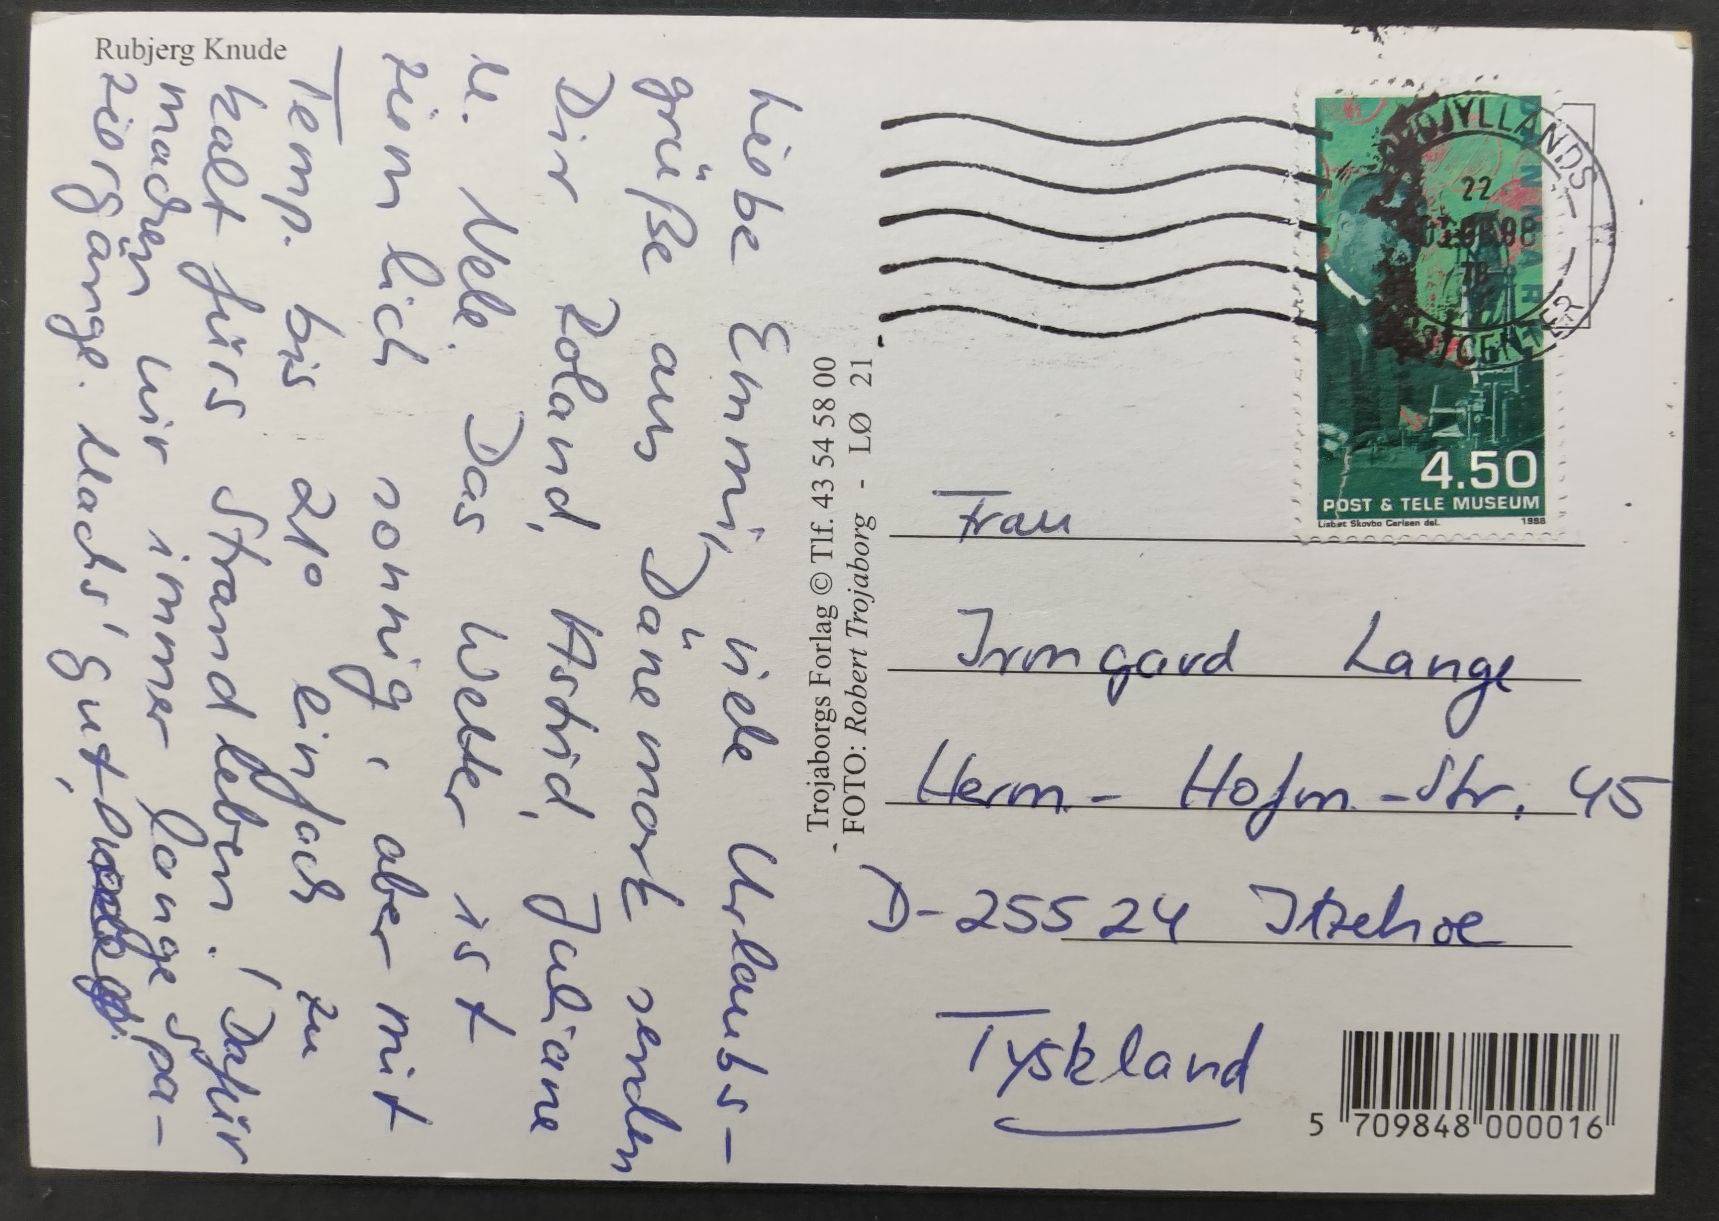 Rubjerg Knude
Liebe Emmi, viele Urlaubs-
grüße aus Dänemark senden
Dir Roland, Astrid, Juliane
u. Nele. Das Wetter ist
ziemlich sonnig, aber mit
Temp. bis 21° einfach zu
kalt fürs Strandleben. Dafür
machen wir immer lange Spa-
ziergänge. Machs' gut,
Trojaborgs Forlag © Tlf. 43 54 58 00
FOTO: Robert Trojaborg - LØ 21
22
POSTCENTER
DANMARK
4.50
POST & TELE MUSEUM
Lisbet Skovbo Carlsen del. 1998
Frau
Irmgard Lange
Herm.- Hofm.-Str. 45
D-25524 Itzehoe
Tyskland
5 709848 000016